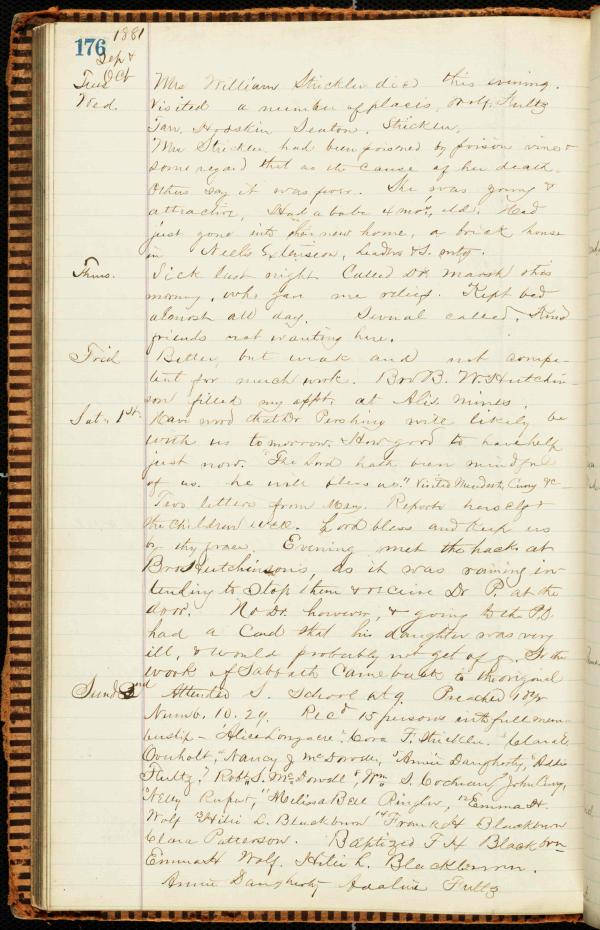 176 1881
Sep &
Oct
Tues Mrs William Strickler died this evening.
Wed. Visited a number of places, Wolf, Fultz
Tarr, Hodskin Seaton, Strickler,
Mrs Strickler had been poisoned by poison vine &
some regard that as the cause of her death.
Others say it was fever. She was young &
attractive, Had a babe 4 mos, old. Had
just gone into their new home, a brick house
in Neels Extension,
Thurs. Sick last night Called Dr. Marsh this
morning, who gave me relief. Kept bed
almost all day. Several called. Kind
friends not wanting here.
Frid Better, but weak and not compe-
tent for much work. Bro B. W. Hutchin-
son filled my appt. at Alis. mines.
Sat. 1st. Have word that Dr Pershing will likely be
with us tomorrow. How good to have help
just now. "The Lord hath been mindful
of us. he will bless us." Visited Murdoch, Curry &c
Two letters from Mary. Reports herself &
the children well. Lord bless and keep us
by thy grace. Evening met the hack at
Bro Hutchinsons, as it was raining in-
tending to stop them & receive Dr P. at the
door. No Dr. however, & going to the P.O.
had a Card that his daughter was very
ill, & would probably not get off. So the
work of Sabbath came back to the original
Sund 2nd Attended S. School at 9. Preached 10½
Numb. 10. 29. Recd 15 persons into full mem-
bership - Alice Longacre. Cora F. Strickler. Clara E.
Overholt, Nancy J McDowell, Annie Daugherty, Addie
Fultz, Robt. S. McDowell, Wm. S. Cochran, John Curry,
Nelly Rupert, Melissa Bell Ringler, 12 Emma H.
Wolf 13 Hilie L. Blackburn 14 Frank H Blackburn
Clara Patterson. Baptized F H Blackburn
Emma H Wolf. Hilie L. Blackburn.
Annie Daugherty Adaline Fultz